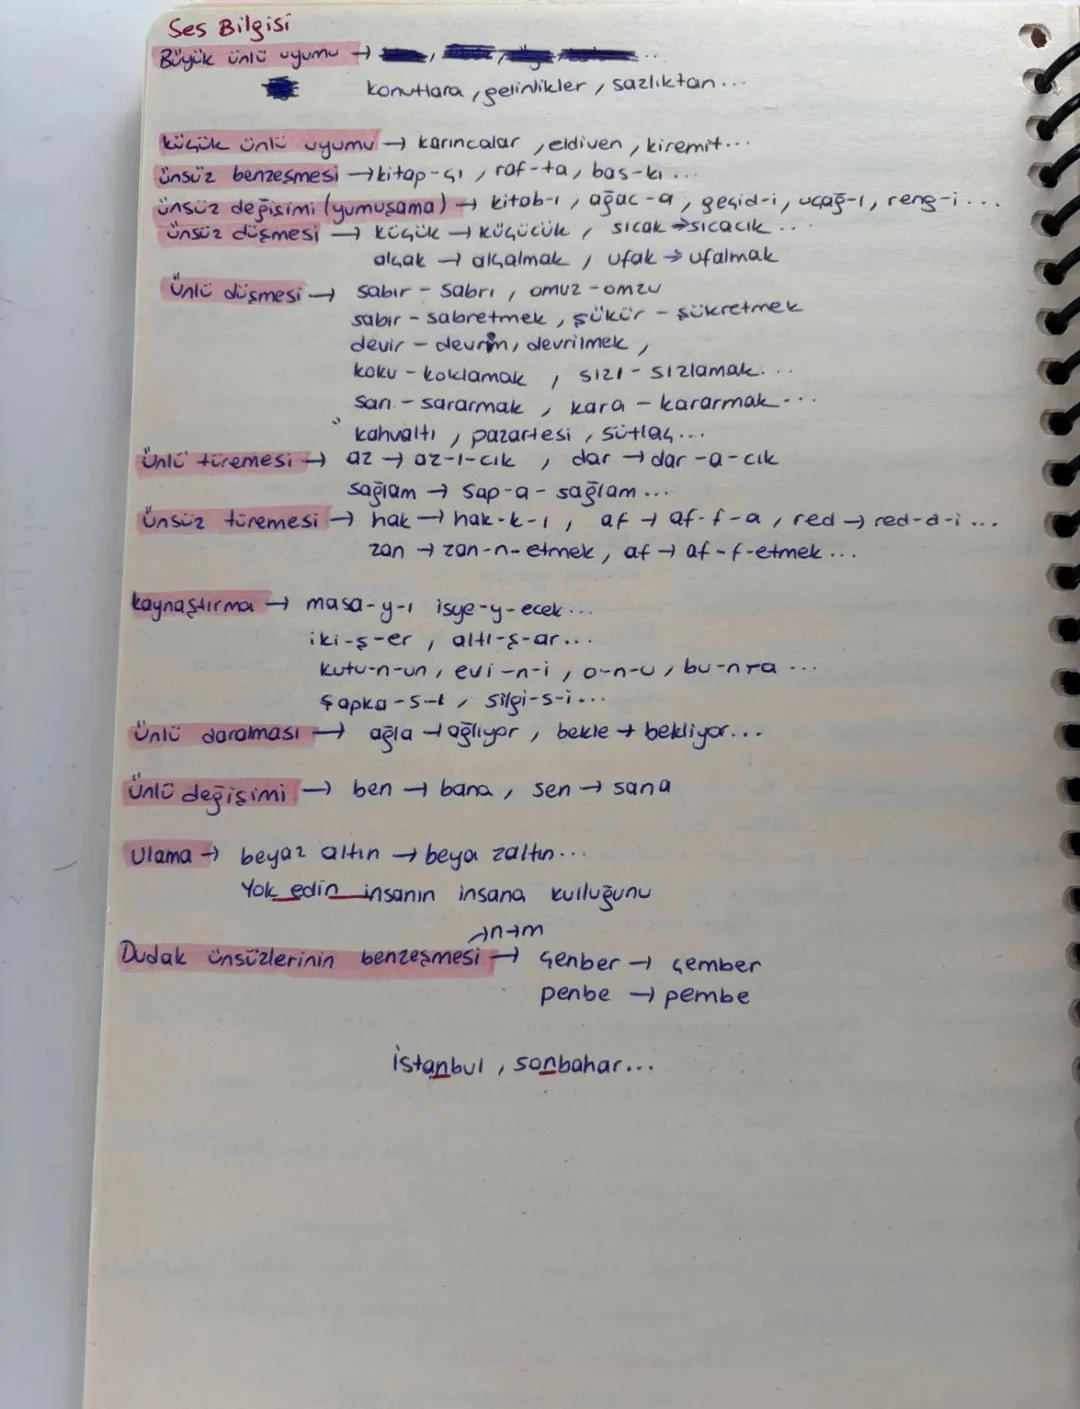 Ses Bilgisi
Büyük ünlü uyumu →
konutlara, gelinlikler, sazlıktan...
küçük ünlü uyumu → karıncalar, eldiven, kiremit...
ünsüz benzeşmesi → kitap-çı, raf-ta, bas-kı...
ünsüz değişimi (yumuşama) → kitab-ı, ağac-a, geçid-i, uçağ-ı, reng-i...
ünsüz düşmesi → küçük → küçücük, sıcak → sıcacık...
alçak → alçalmak, ufak → ufalmak
ünlü düşmesi → sabır - sabrı, omuz - omzu
sabır - sabretmek, şükür - şükretmek
devir - devrin, devrilmek,
koku - koklamak, sızı - sızlamak...
sarı - sararmak, kara - kararmak...
" kahvaltı, pazartesi, sütlaç...
ünlü türemesi → az → az-ı-cık, dar → dar-a-cık
sağlam → sap-a-sağlam...
ünsüz türemesi → hak → hak-k-ı, af → af-f-a, red → red-d-i...
zan → zan-n-etmek, af → af-f-etmek...
kaynaştırma → masa-y-ı isye-y-ecek...
iki-ş-er, altı-ş-ar...
kutu-n-un, evi-n-i, o-n-u, bu-nra...
şapka-s-ı, silgi-s-i...
ünlü daralması → ağla → ağlıyor, bekle → bekliyor...
ünlü değişimi → ben → bana, sen → sana
Ulama → beyaz altın → beya zaltın...
Yok edin insanın insana kulluğunu
→ n→m
Dudak ünsüzlerinin benzeşmesi → çenber → çember
penbe → pembe
İstanbul, sonbahar...